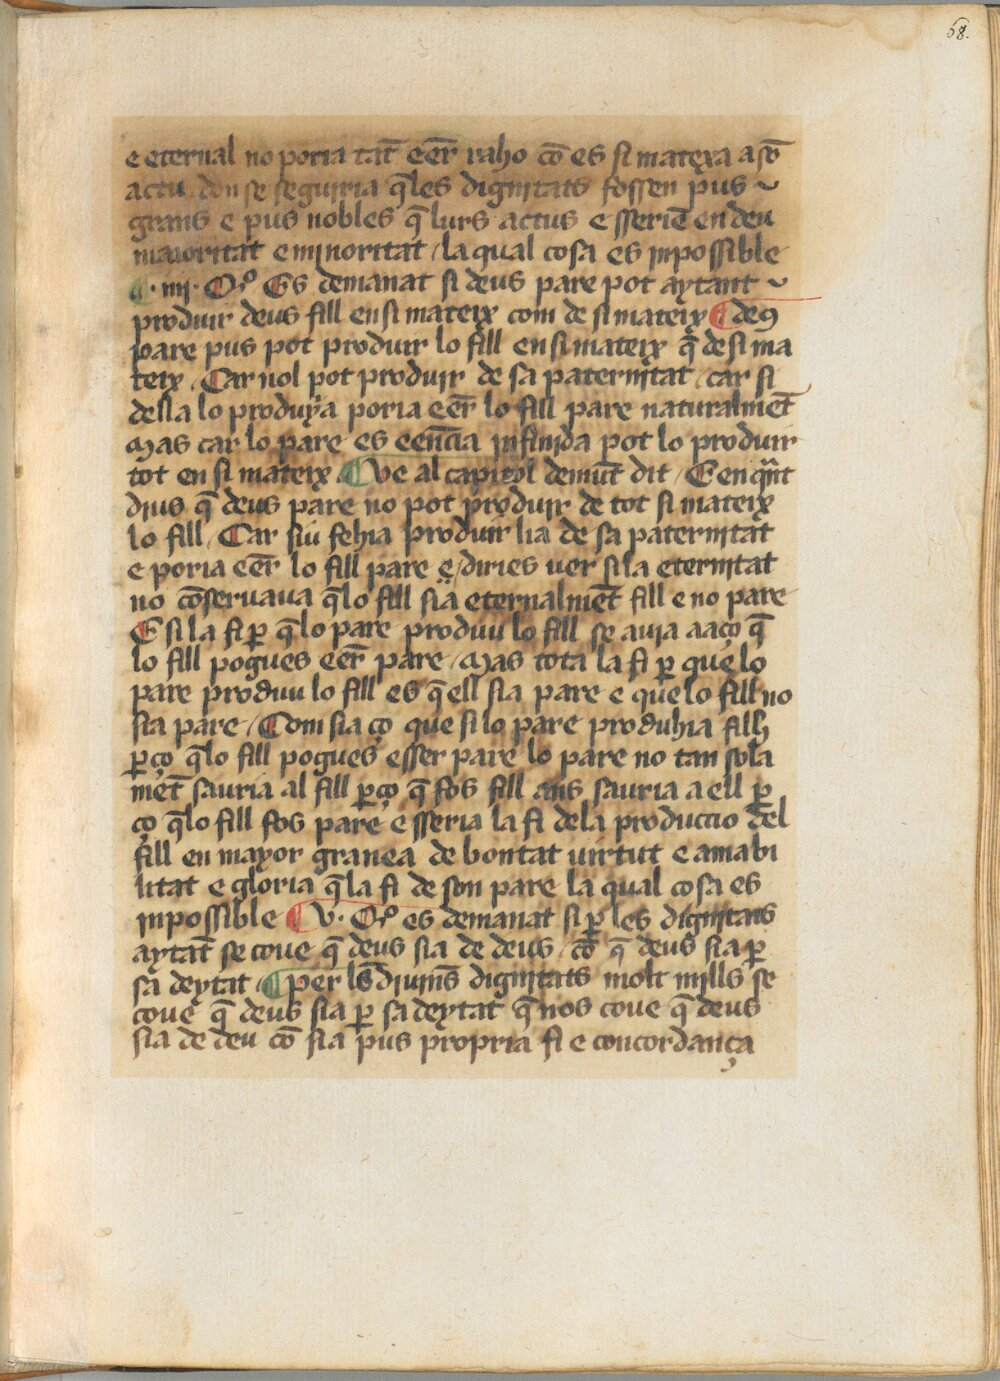 68.
e eternal no poria tāt eēr raho cō es si matexa a sō
actu don se seguiria q̄les dignitats fossen pus ~
grans e pus nobles q̄ lurs actus e sseriē en deu
maioritat e minoritat / la qual cosa es inpossible
¶ ·iiij· Qº Es demanat si deus pare pot aytant ~
produir deus fill en si mateix com de si mateix ¶ deꝯ
pare pus pot produir lo fill en si mateix q̄ de si ma
teix / Car nol pot produir de sa paternitat / car si
della lo produya poria eēr lo fill pare naturalmēt
Mas car lo pare es eēncia infinida pot lo produir
tot en si mateix ¶ Ve al capitol demūt dit / E en qn̄t
dius q̄ deus pare no pot produir de tot si mateix
lo fill / Car siu fehia produir lia de sa paternitat
e poria eēr lo fill pare e / diries ver si la eternitat
no cōservava q̄lo fill sia eternalmēt fill e no pare
E si la fi ꝑ q̄lo pare produu lo fill se avia aaço q̄
lo fill pogues eēr pare / Mas tota la fi ꝑ que lo
pare produu lo fill es q̄ ell sia pare e que lo fill no
sia pare / Com sia ço que si lo pare produhia fill
ꝑço q̄lo fill pogues esser pare lo pare no tan sola
mēt sauria al fill ꝑço q̄ fos fill ans sauria a ell ꝑ
ço q̄lo fill fos pare e sseria la fi dela produccio del
fill en mayor granea de bontat virtut e amabi
litat e gloria q̄la fi de son pare la qual cosa es
inpossible ¶ V· Qº es demanat si ꝑ les dignitats
aytāt se cove q̄ deus sia de deus / cō q̄ deus sia ꝑ
sa deytat ¶ per les divin̄s dignitats molt mills se
cove q̄ deus sia ꝑ sa deytat q̄ nos cove q̄ deus
sia de deu cō sia pus propria fi e concordança